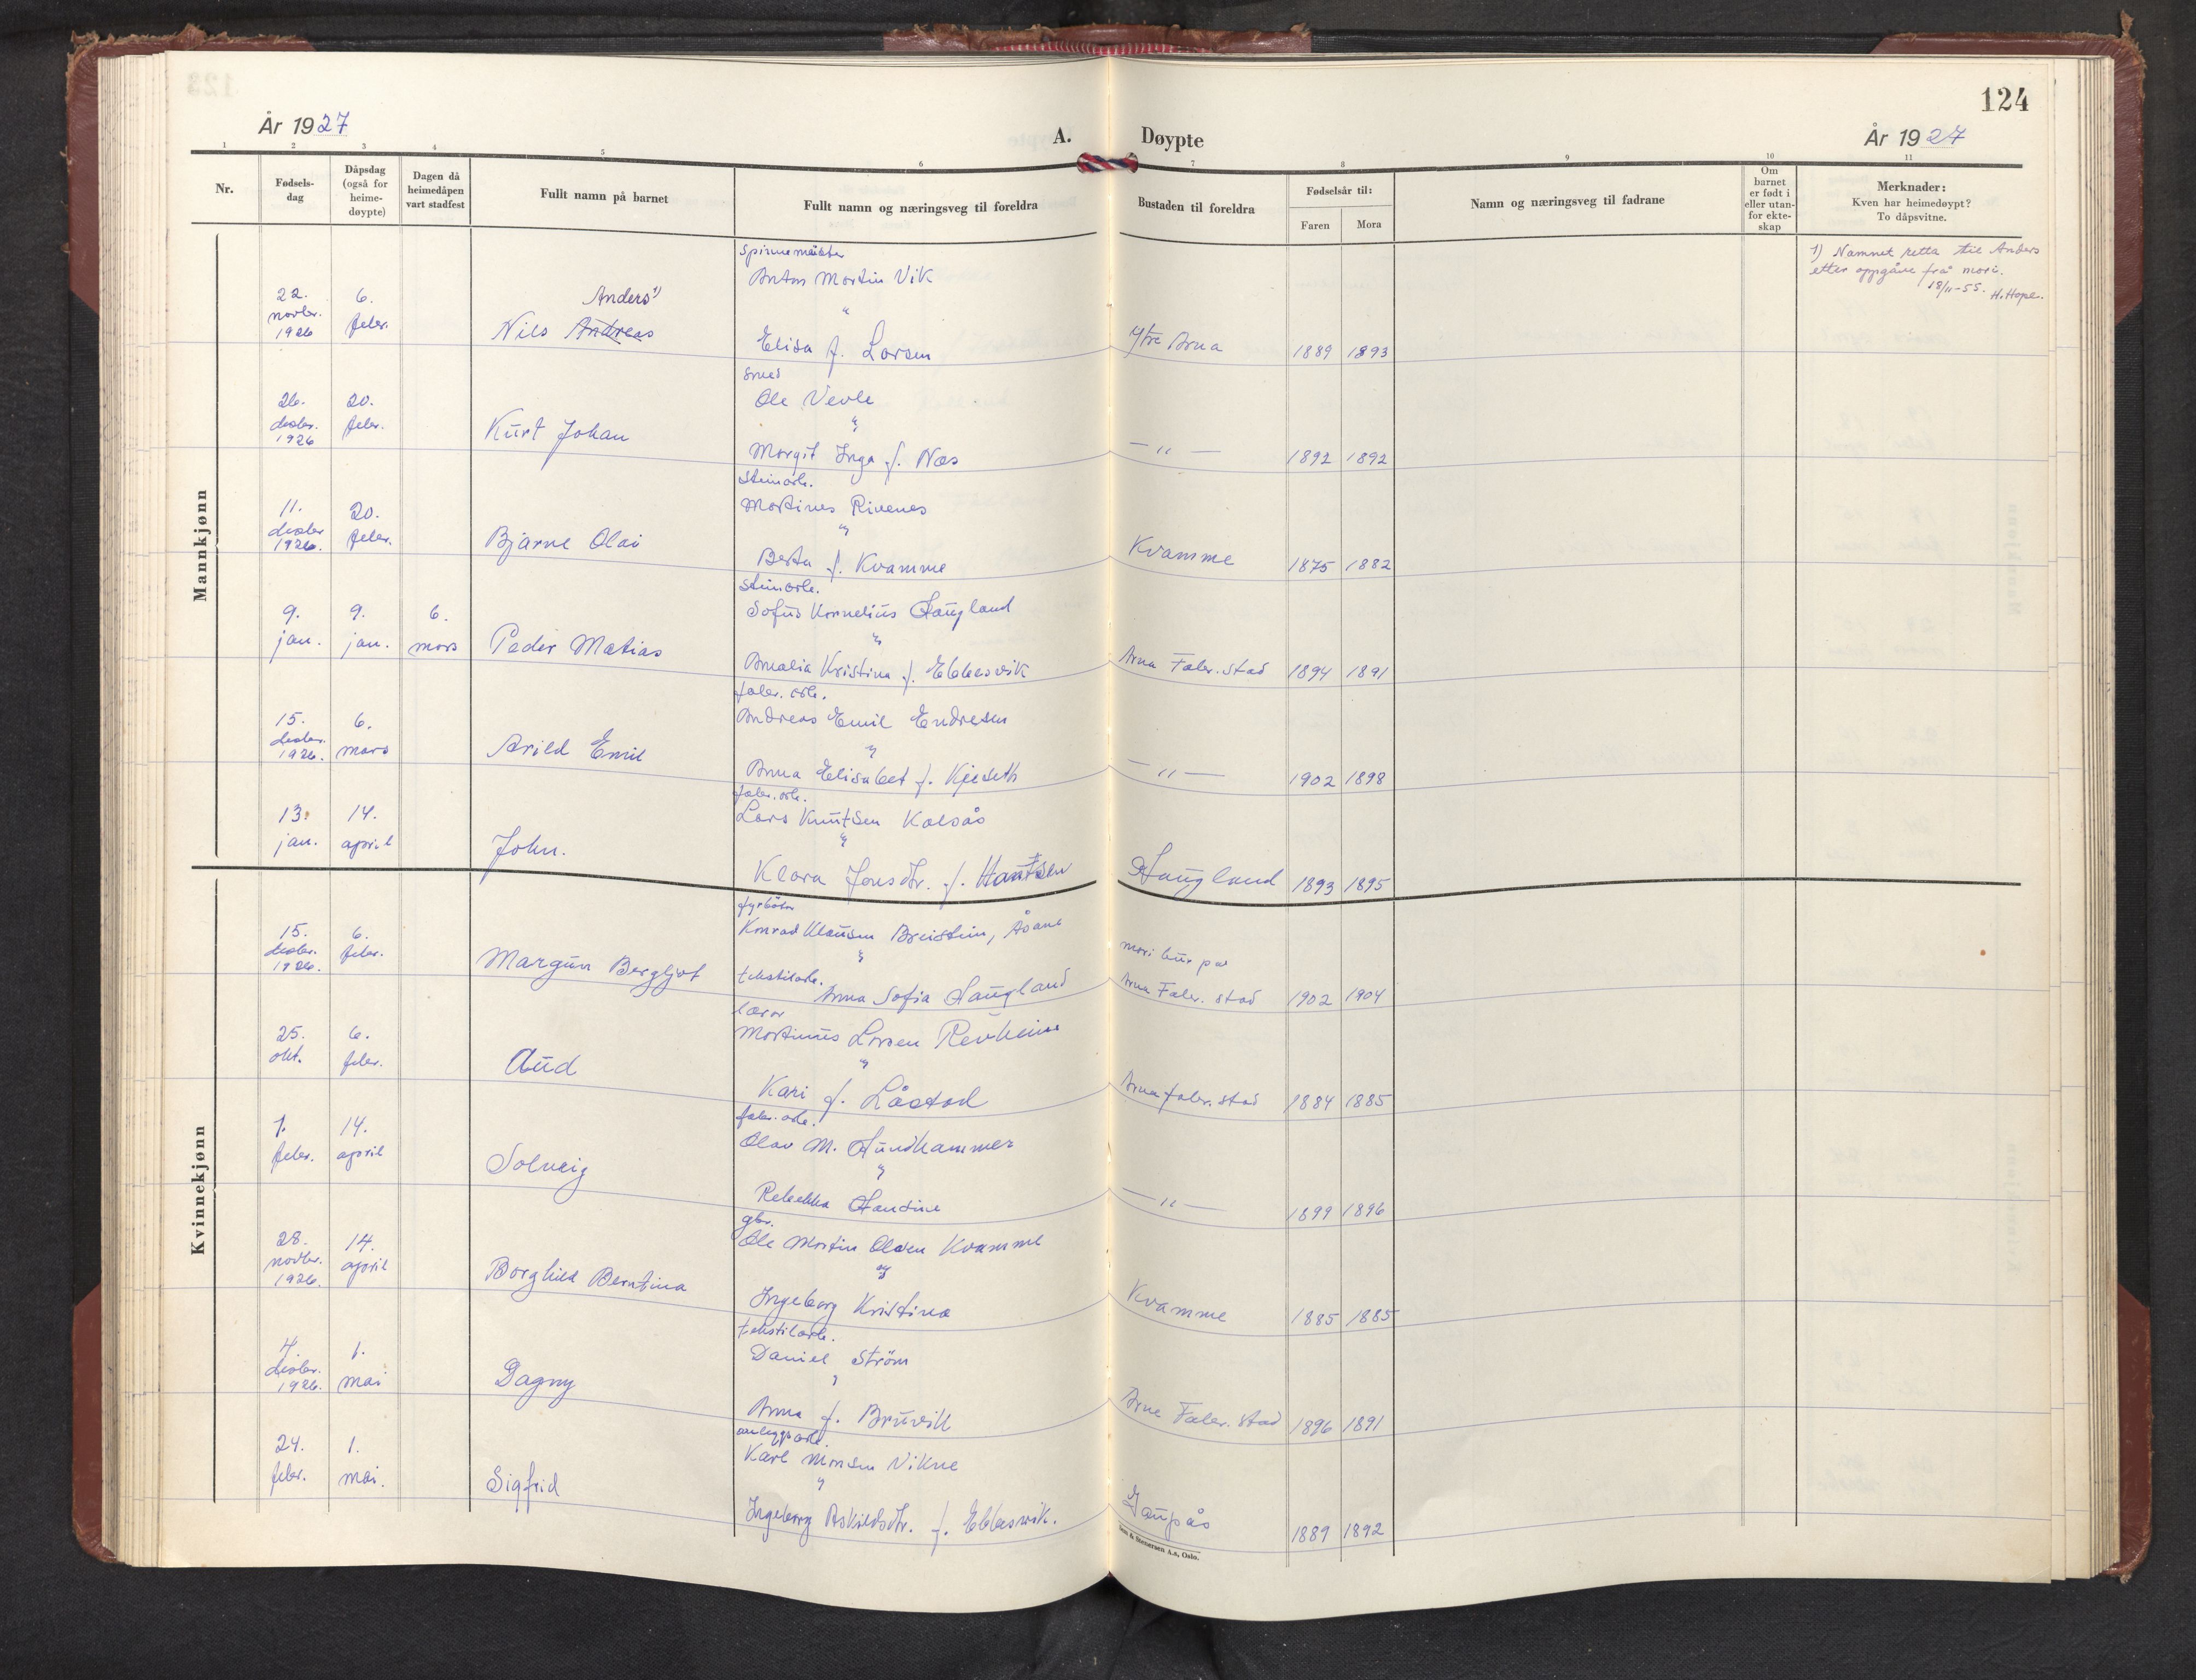 124
År 1927
A. Døypte
År 1927
1 2 3 4 5 6 7 8 9 10 11
Nr.
Fødsels-
dag
Dåpsdag
(også for
heime-
døypte)
Dagen då
heimedåpen
vart stadfest
Fullt namn på barnet
Fullt namn og næringsveg til foreldra
Bustaden til foreldra
Fødselsår til:
Faren Mora
Namn og næringsveg til fadrane
Om
barnet
er født i
eller utan-
for ekte-
skap
Merknader:
Kven har heimedøypt?
To dåpsvitne.
Mannkjønn
22.
novbr.
1926
6.
febr.
Anders 1)
Nils Andreas
spinnemeister
Anton Martin Vik
"
Elisa f. Larsen
Ytre Arna
1889 1893
1) Namnet retta til Anders
etter oppgåve frå mori.
18/11-55. H. Hope.
26.
desbr.
1926
20.
febr.
Kurt Johan
smed
Ole Vevle
"
Margit Inga f. Næs
— " —
1892 1892
11.
desbr
1926.
20.
febr.
Bjarne Olai
steinarb.
Martines Rivenes
"
Berta f. Kvamme
Kvamme
1875 1882
9.
jan.
9.
jan.
6.
mars
Peder Matias
steinarb.
Sofus Kornelius Haugland
"
Amalia Kristina f. Ebbesvik
Arna Fabr. stad
1894 1891
15.
desbr.
1926.
6.
mars
Arild Emil
fabr. arb.
Andreas Emil Endresen
"
Anna Elisabet f. Kjeseth
— " —
1902 1898
13.
jan.
14.
april
John.
fabr. arb.
Lars Knutsen Kalsås
"
Klara Jonsdtr. f.
Haugland
1893 1895
Kvinnekjønn
15.
desbr.
1926.
6.
febr.
Margun Bergljot
fyrbøter
Konrad Klausen Breistein, Åsane
"
tekstilarb.
Anna Sofia Haugland
mori bur på
Arna Fabr. stad
1902 1904
25.
okt.
6.
febr.
Aud
lærar
Martinus Larsen Revheim
"
Kari f. Låstad
Arna fabr. stad
1884 1885
1.
febr.
14.
april
Solveig
fabr. arb.
Olav M. Sundhammer
"
Rebekka
— " —
1899 1896
28.
novbr.
1926.
14.
april
Borghild Berntina
gbr.
Ole Martin Olsen Kvamme
og
Ingeborg Kristina
Kvamme
1885 1885
4.
desbr.
1926.
1.
mai
Dagny
tekstilarb.
Daniel Ström
"
Anna f. Bruvik
Arna Fabr. stad
1896 1891
24.
febr.
1.
mai.
Sigfrid
anleggsarb.
Karl Monsen Vikne
"
Ingeborg Askildsdtr. f. Ebbesvik.
Gaupås
1889 1892
& Stenersen A.s, Oslo.